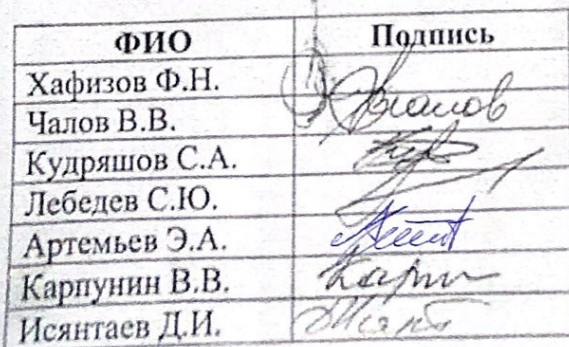 ФИО Подпись
Хафизов Ф.Н.
Чалов В.В.
Кудряшов С.А.
Лебедев С.Ю.
Артемьев Э.А.
Карпунин В.В.
Исянтаев Д.И.